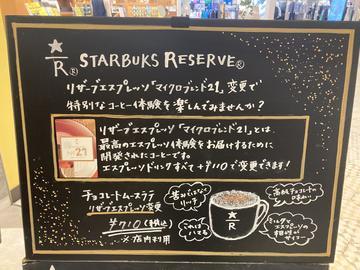 ★
R® STARBUKS RESERVE®
リザーブエスプレッソ「マイクロブレンド21」変更で
特別なコーヒー体験を楽しんでみませんか?
No21
リザーブエスプレッソ「マイクロブレンド21」とは、
最高のエスプレッソ体験をお届けするために
開発されたコーヒーです。
エスプレッソドリンクすべて+¥110で変更できます!
チョコレートムースラテ
リザーブエスプレッソ変更
¥710(税込)
※店内利用
苦みではなく
リッチ
これは
ハマる
★
R
高級チョコレートの
味わい
ミルクと
エスプレッソの
相性が
サイコー